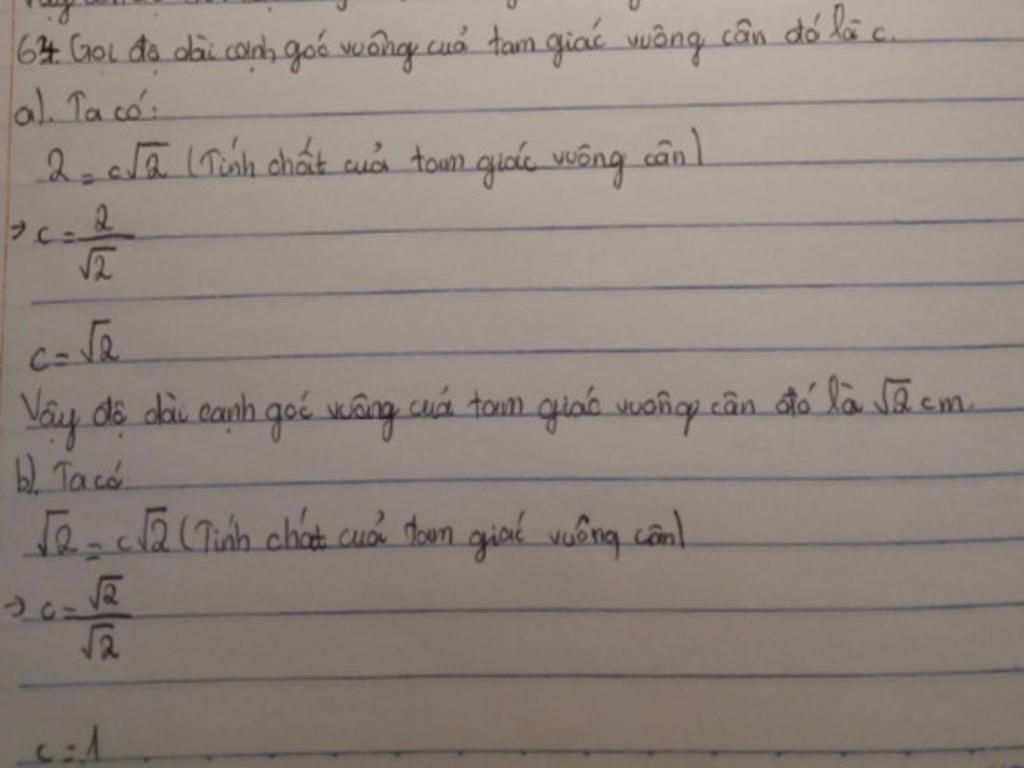 64. Gọi độ dài cạnh góc vuông của tam giác vuông cân đó là c.
a). Ta có:
2 = c√2 (Tính chất của tam giác vuông cân)
→ c = 2/√2
c = √2
Vậy độ dài cạnh góc vuông của tam giác vuông cân đó là √2 cm.
b). Ta có
√2 = c√2 (Tính chất của tam giác vuông cân)
→ c = √2/√2
c = 1